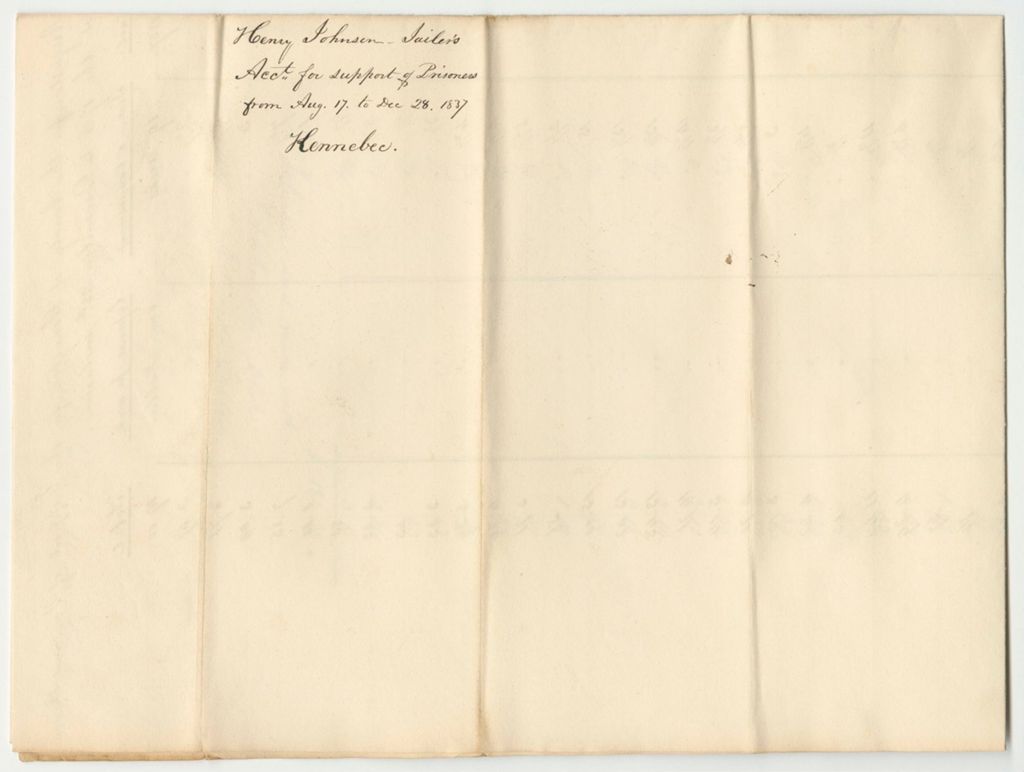 Henry Johnson - Jailer's
Acct. for support of Prisoners
from Aug. 17. to Dec 28. 1837
Kennebec.